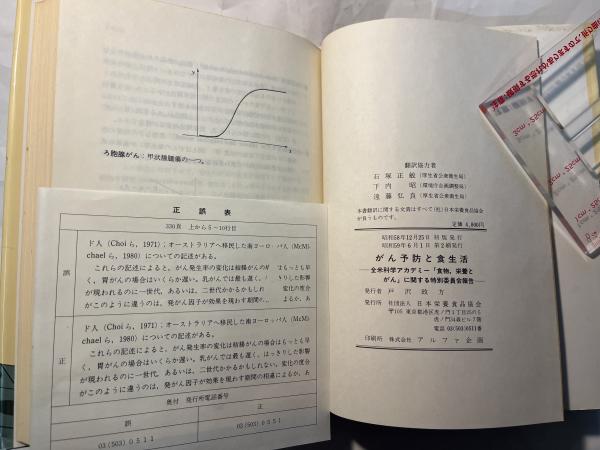 y
x
ろ胞腺がん：甲状腺腫瘍の一つ。
正誤表
330頁 上から5～10行目
誤
ド人（Choiら, 1971）；オーストラリアへ移民した南ヨーロッパ人（McMi
chaelら, 1980）についての記述がある。
これらの記述によると，がん発生率の変化は結腸がんの
まもっとも早
く，胃がんの場合はいくらか遅い。乳がんでは最も遅く，
っきりした影響
が現われるのに一世代，あるいは，二世代かかるかもしれ
変化の度合
がこのように違うのは，発がん因子が効果を現わす期間の
よるか，あ
正
ド人（Choiら, 1971）；オーストラリアへ移民した南ヨーロッパ人（McM
chaelら, 1980）についての記述がある。
これらの記述によると，がん発生率の変化は結腸がんの場合はもっとも早
く，胃がんの場合はいくらか遅い。乳がんでは最も遅く，はっきりした影響
が現われるのに一世代，あるいは，二世代かかるかもしれない。変化の度合
がこのように違うのは，発がん因子が効果を現わす期間の相違によるか，あ
奥付 発行所電話番号
誤
正
03(503)0511
03(503)6511
翻訳協力者
石塚正敏（厚生省公衆衛生局）
下内昭（環境庁企画調整局）
遠藤弘良（厚生省公衆衛生局）
本書翻訳に関する文責はすべて(社)日本栄養食品協会
が負うものです。
定価 4,000円
昭和58年12月25日 初版発行
昭和59年6月1日 第2刷発行
がん予防と食生活
―全米科学アカデミー「食物，栄養と
がん」に関する特別委員会報告―
発行者 戸沢政方
発行所 社団法人 日本栄養食品協会
〒105 東京都港区虎ノ門1丁目25の5
虎ノ門34森ビル7階
電話 03(503)0511番
印刷所 株式会社 アルファ企画